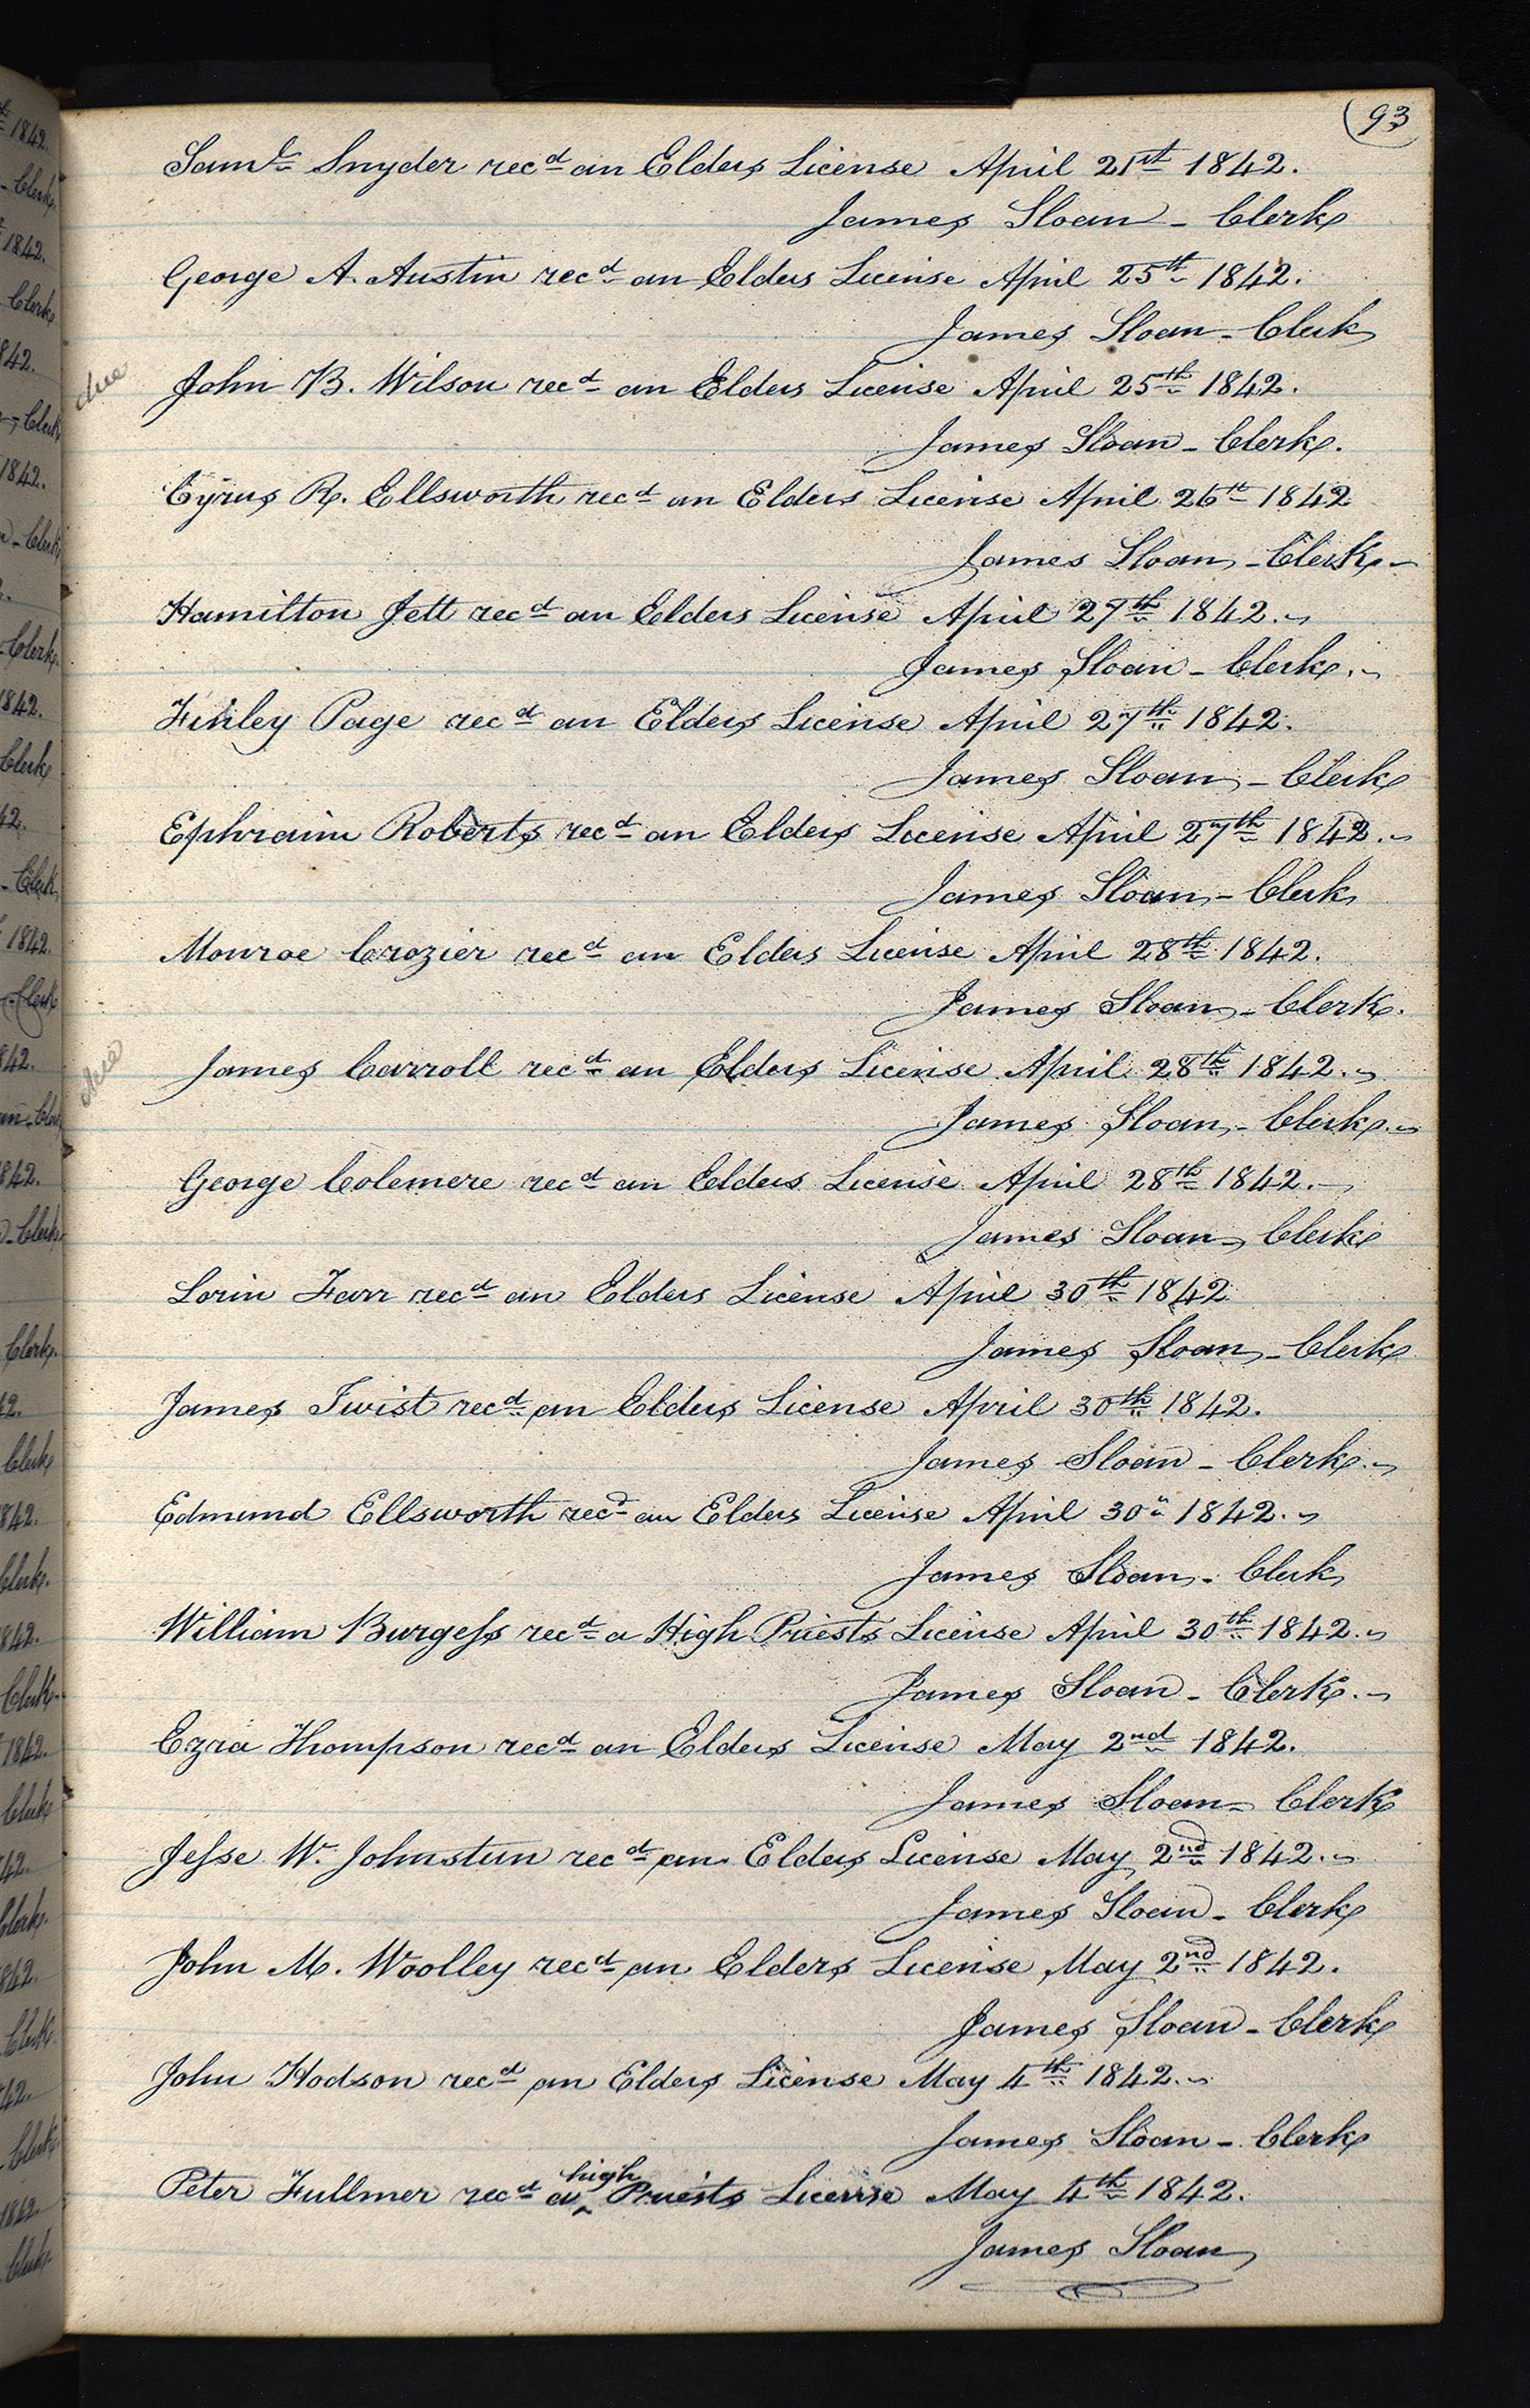 93
Saml. Snyder recd an Elders License April 21st 1842.
James Sloan - Clerk
George A. Austin recd an Elders License April 25th 1842.
James Sloan - Clerk
due
John B. Wilson recd an Elders License April 25th 1842.
James Sloan - Clerk.
Cyrus R. Ellsworth recd an Elders License April 26th 1842
James Sloan - Clerk
Hamilton Jett recd an Elders License April 27th 1842.
James Sloan - Clerk.
Finley Page recd an Elders License April 27th 1842.
James Sloan - Clerk
Ephraim Roberts recd an Elders License April 27th 1842.
James Sloan - Clerk
Monroe Crozier recd an Elders License April 28th 1842.
James Sloan - Clerk.
due
James Carroll recd an Elders License April 28th 1842.
James Sloan - Clerk.
George Colemere recd an Elders License April 28th 1842.
James Sloan - Clerk
Lorin Farr recd an Elders License April 30th 1842
James Sloan - Clerk
James Twist recd an Elders License April 30th 1842.
James Sloan - Clerk.
Edmund Ellsworth recd an Elders License April 30" 1842.
James Sloan - Clerk
William Burgess recd a High Priests License April 30th 1842.
James Sloan - Clerk.
Ezra Thompson recd an Elders License May 2nd 1842.
James Sloan - Clerk
Jesse W. Johnstun recd an Elders License May 2nd 1842.
James Sloan - Clerk
John M. Woolley recd an Elders License May 2nd 1842.
James Sloan - Clerk
John Hodson recd an Elders License May 4th 1842.
James Sloan - Clerk
Peter Fullmer recd a high Priests License May 4th 1842.
James Sloan